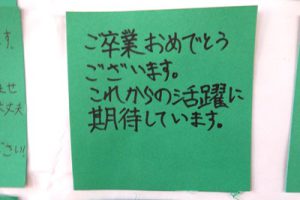 ご卒業おめでとう
ございます。
これからの活躍に
期待しています。
す。
ませ
丈夫
ださい!